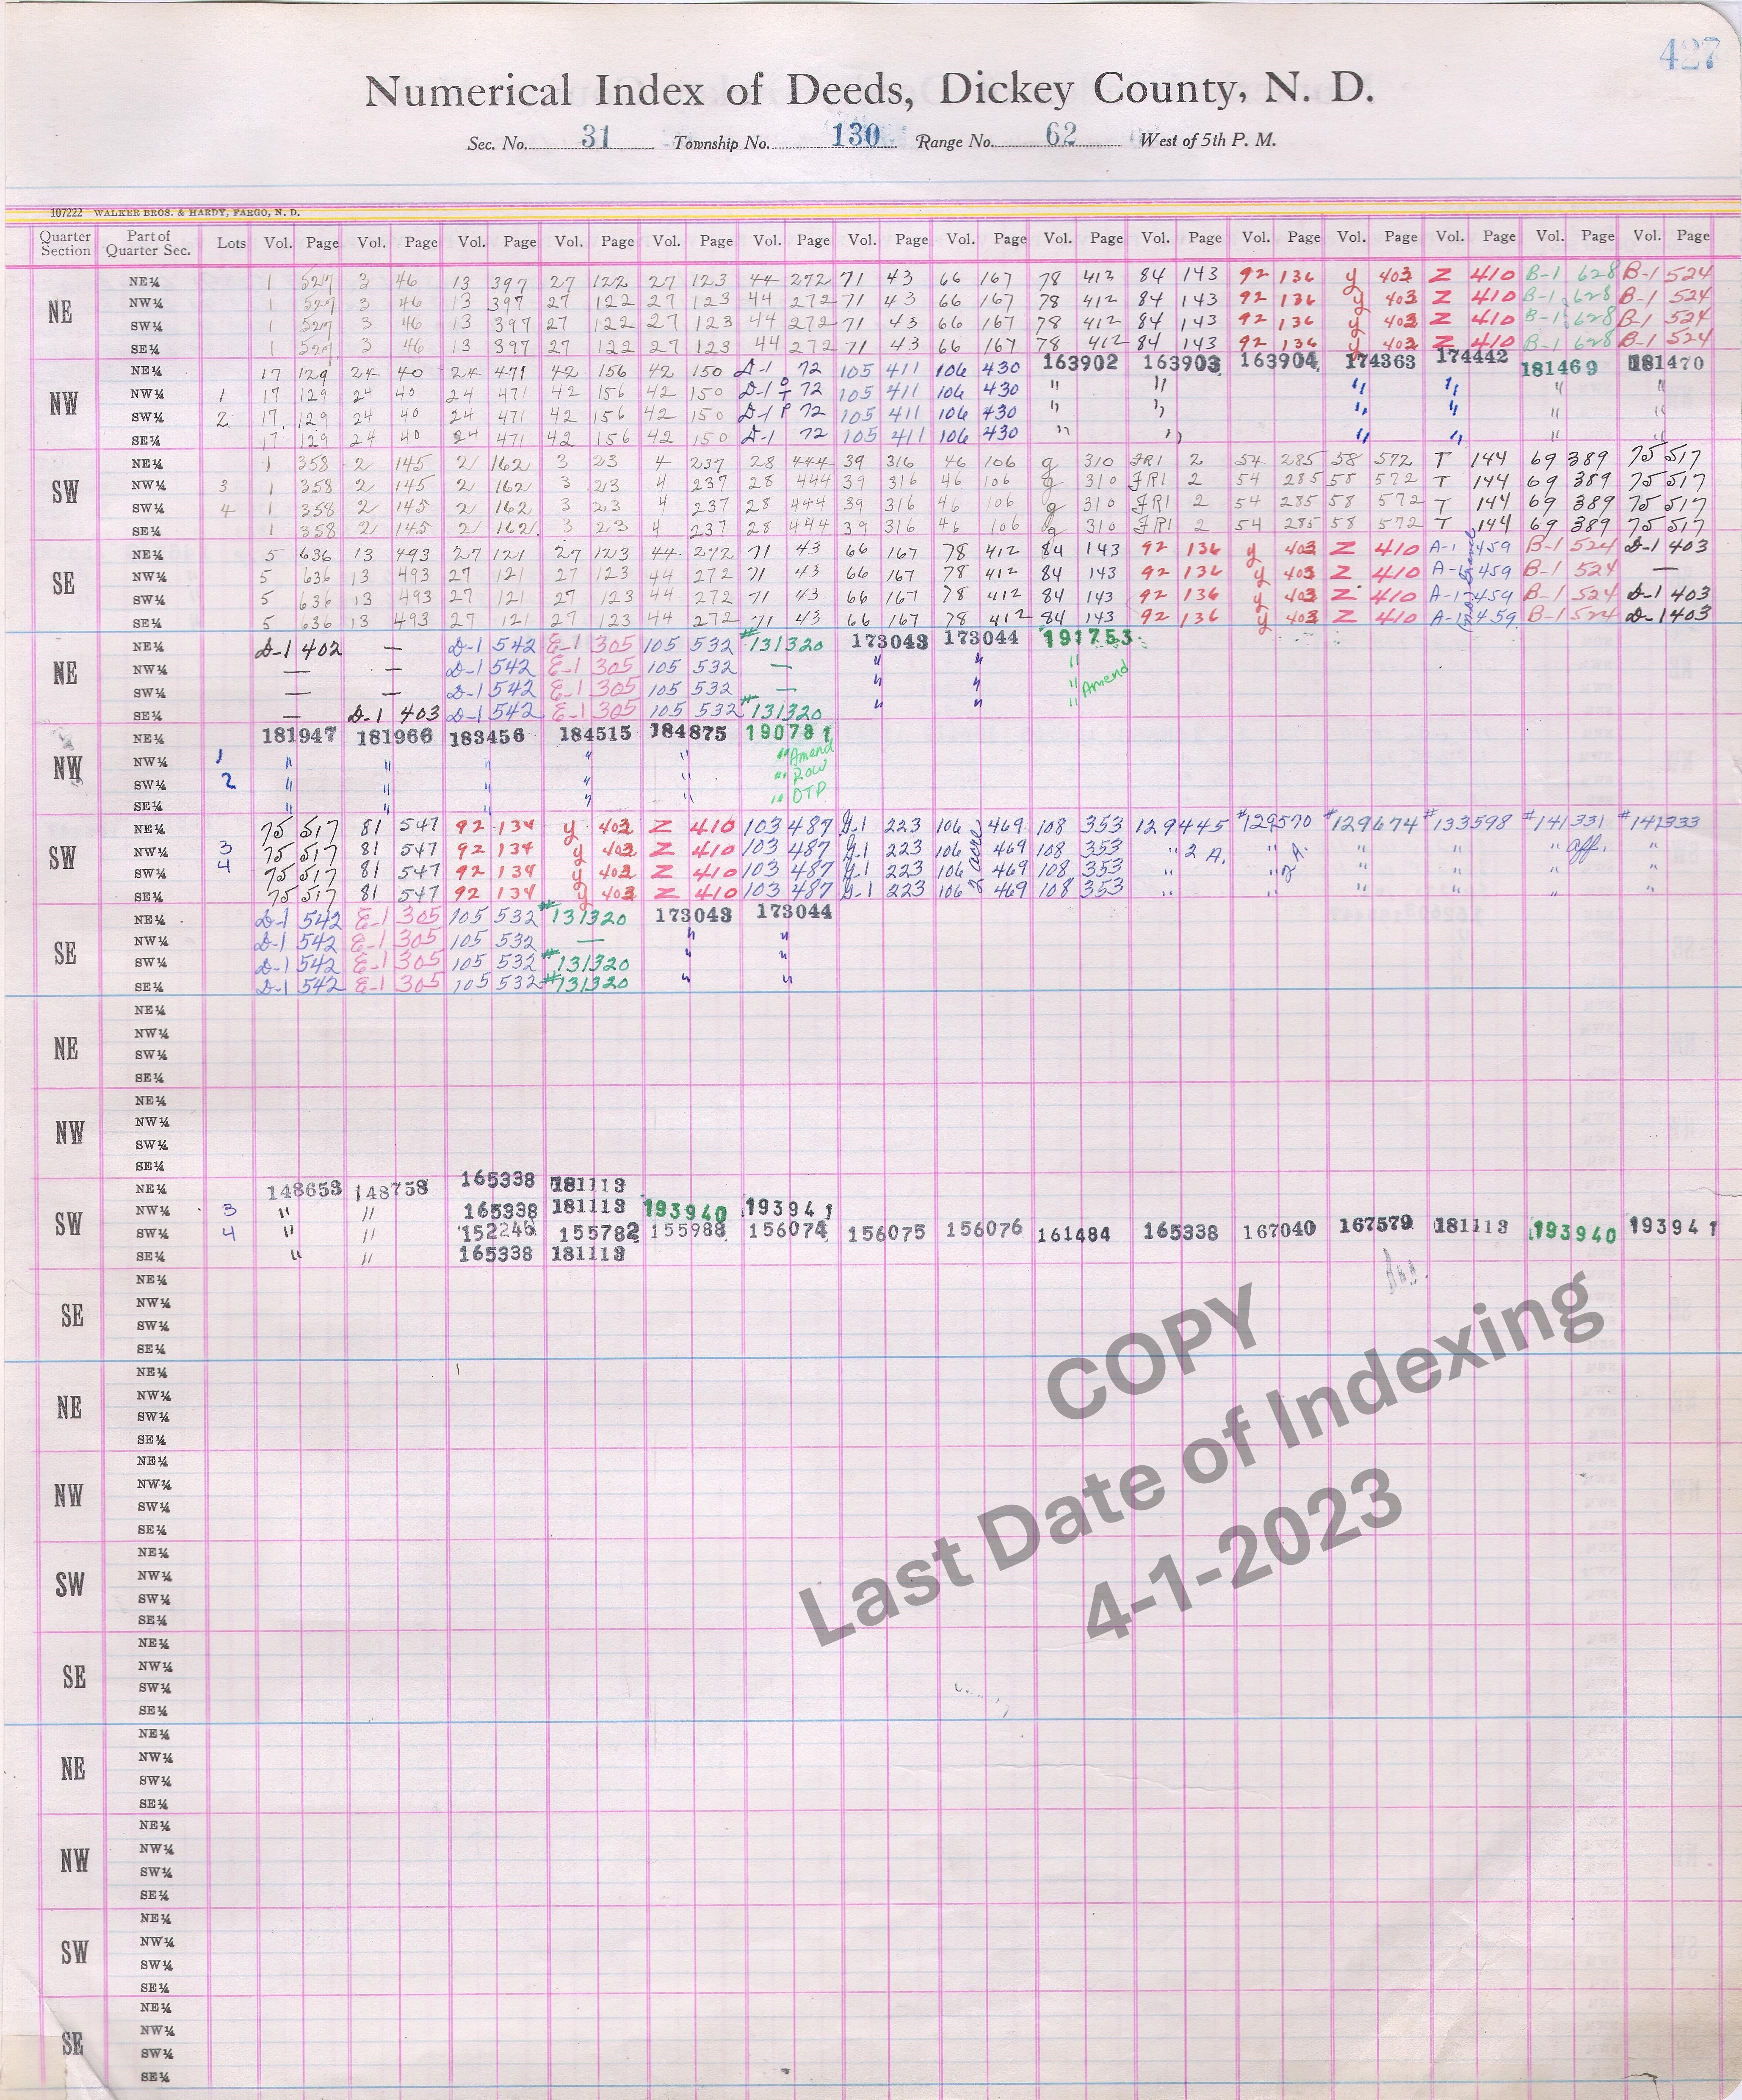 427
Numerical Index of Deeds, Dickey County, N. D.
Sec. No. 31 Township No. 130 Range No. 62 West of 5th P. M.
107222 WALKER BROS. & HARDY, FARGO, N. D.
Quarter Section Part of Quarter Sec. Lots Vol. Page Vol. Page Vol. Page Vol. Page Vol. Page Vol. Page Vol. Page Vol. Page Vol. Page Vol. Page Vol. Page Vol. Page Vol. Page Vol. Page Vol. Page
NE NE¼ 1 527 3 46 13 397 27 122 27 123 44 272 71 43 66 167 78 412 84 143 92 136 y 403 Z 410 B-1 628 B-1 524
NW¼ 1 527 3 46 13 397 27 122 27 123 44 272 71 43 66 167 78 412 84 143 92 136 y 403 Z 410 B-1 628 B-1 524
SW¼ 1 527 3 46 13 397 27 122 27 123 44 272 71 43 66 167 78 412 84 143 92 136 y 403 Z 410 B-1 628 B-1 524
SE¼ 1 527 3 46 13 397 27 122 27 123 44 272 71 43 66 167 78 412 84 143 92 136 y 403 Z 410 B-1 628 B-1 524
NW NE¼ 17 129 24 40 24 471 42 156 42 150 D-1 72 105 411 106 430 163902 163903 163904 174363 174442 181469 181470
NW¼ 1 17 129 24 40 24 471 42 156 42 150 D-1 72 105 411 106 430 " " " " " "
SW¼ 2 17 129 24 40 24 471 42 156 42 150 D-1 72 105 411 106 430 " " " " " "
SE¼ 17 129 24 40 24 471 42 156 42 150 D-1 72 105 411 106 430 " " " " " "
SW NE¼ 1 358 2 145 2 162 3 23 4 237 28 444 39 316 46 106 g 310 JR1 2 54 285 58 572 T 144 69 389 75 517
NW¼ 3 1 358 2 145 2 162 3 23 4 237 28 444 39 316 46 106 g 310 JR1 2 54 285 58 572 T 144 69 389 75 517
SW¼ 4 1 358 2 145 2 162 3 23 4 237 28 444 39 316 46 106 g 310 JR1 2 54 285 58 572 T 144 69 389 75 517
SE¼ 1 358 2 145 2 162 3 23 4 237 28 444 39 316 46 106 g 310 JR1 2 54 285 58 572 T 144 69 389 75 517
SE NE¼ 5 636 13 493 27 121 27 123 44 272 71 43 66 167 78 412 84 143 92 136 y 403 Z 410 A-1 459 B-1 524 D-1 403
NW¼ 5 636 13 493 27 121 27 123 44 272 71 43 66 167 78 412 84 143 92 136 y 403 Z 410 A-1 459 B-1 524 —
SW¼ 5 636 13 493 27 121 27 123 44 272 71 43 66 167 78 412 84 143 92 136 y 403 Z 410 A-1 459 B-1 524 D-1 403
SE¼ 5 636 13 493 27 121 27 123 44 272 71 43 66 167 78 412 84 143 92 136 y 403 Z 410 A-1 459 B-1 524 D-1 403
NE NE¼ D-1 402 — D-1 542 E-1 305 105 532 #131320 173043 173044 191753
NW¼ — — D-1 542 E-1 305 105 532 — " " "
SW¼ — — D-1 542 E-1 305 105 532 — " " " Amend
SE¼ — D-1 403 D-1 542 E-1 305 105 532 #131320 " " "
NW NE¼ 181947 181966 183456 184515 184875 190781
NW¼ 1 " " " " " " Amend
SW¼ 2 " " " " " " Row
SE¼ " " " " " " OTP
SW NE¼ 75 517 81 547 92 134 y 403 Z 410 103 487 G-1 223 106 469 108 353 129445 #129570 #129674 #133598 #141331 #141333
NW¼ 3 75 517 81 547 92 134 y 403 Z 410 103 487 G-1 223 106 469 108 353 " 2 A. " 2 A. " " " aff. "
SW¼ 4 75 517 81 547 92 134 y 403 Z 410 103 487 G-1 223 106 469 108 353 " " " " " "
SE¼ 75 517 81 547 92 134 y 403 Z 410 103 487 G-1 223 106 469 108 353 " " " " " "
SE NE¼ D-1 542 E-1 305 105 532 #131320 173043 173044
NW¼ D-1 542 E-1 305 105 532 — " "
SW¼ D-1 542 E-1 305 105 532 #131320 " "
SE¼ D-1 542 E-1 305 105 532 #131320 " "
NE NE¼
NW¼
SW¼
SE¼
NW NE¼
NW¼
SW¼
SE¼
SW NE¼ 148653 148758 165338 181113
NW¼ 3 " " 165338 181113 193940 193941
SW¼ 4 " " 152246 155782 155988 156074 156075 156076 161484 165338 167040 167579 181113 193940 193941
SE¼ " " 165338 181113
SE NE¼
NW¼
SW¼
SE¼
NE NE¼
NW¼
SW¼
SE¼
NW NE¼
NW¼
SW¼
SE¼
SW NE¼
NW¼
SW¼
SE¼
SE NE¼
NW¼
SW¼
SE¼
NE NE¼
NW¼
SW¼
SE¼
NW NE¼
NW¼
SW¼
SE¼
SW NE¼
NW¼
SW¼
SE¼
SE NE¼
NW¼
SW¼
SE¼
COPY
Last Date of Indexing
4-1-2023